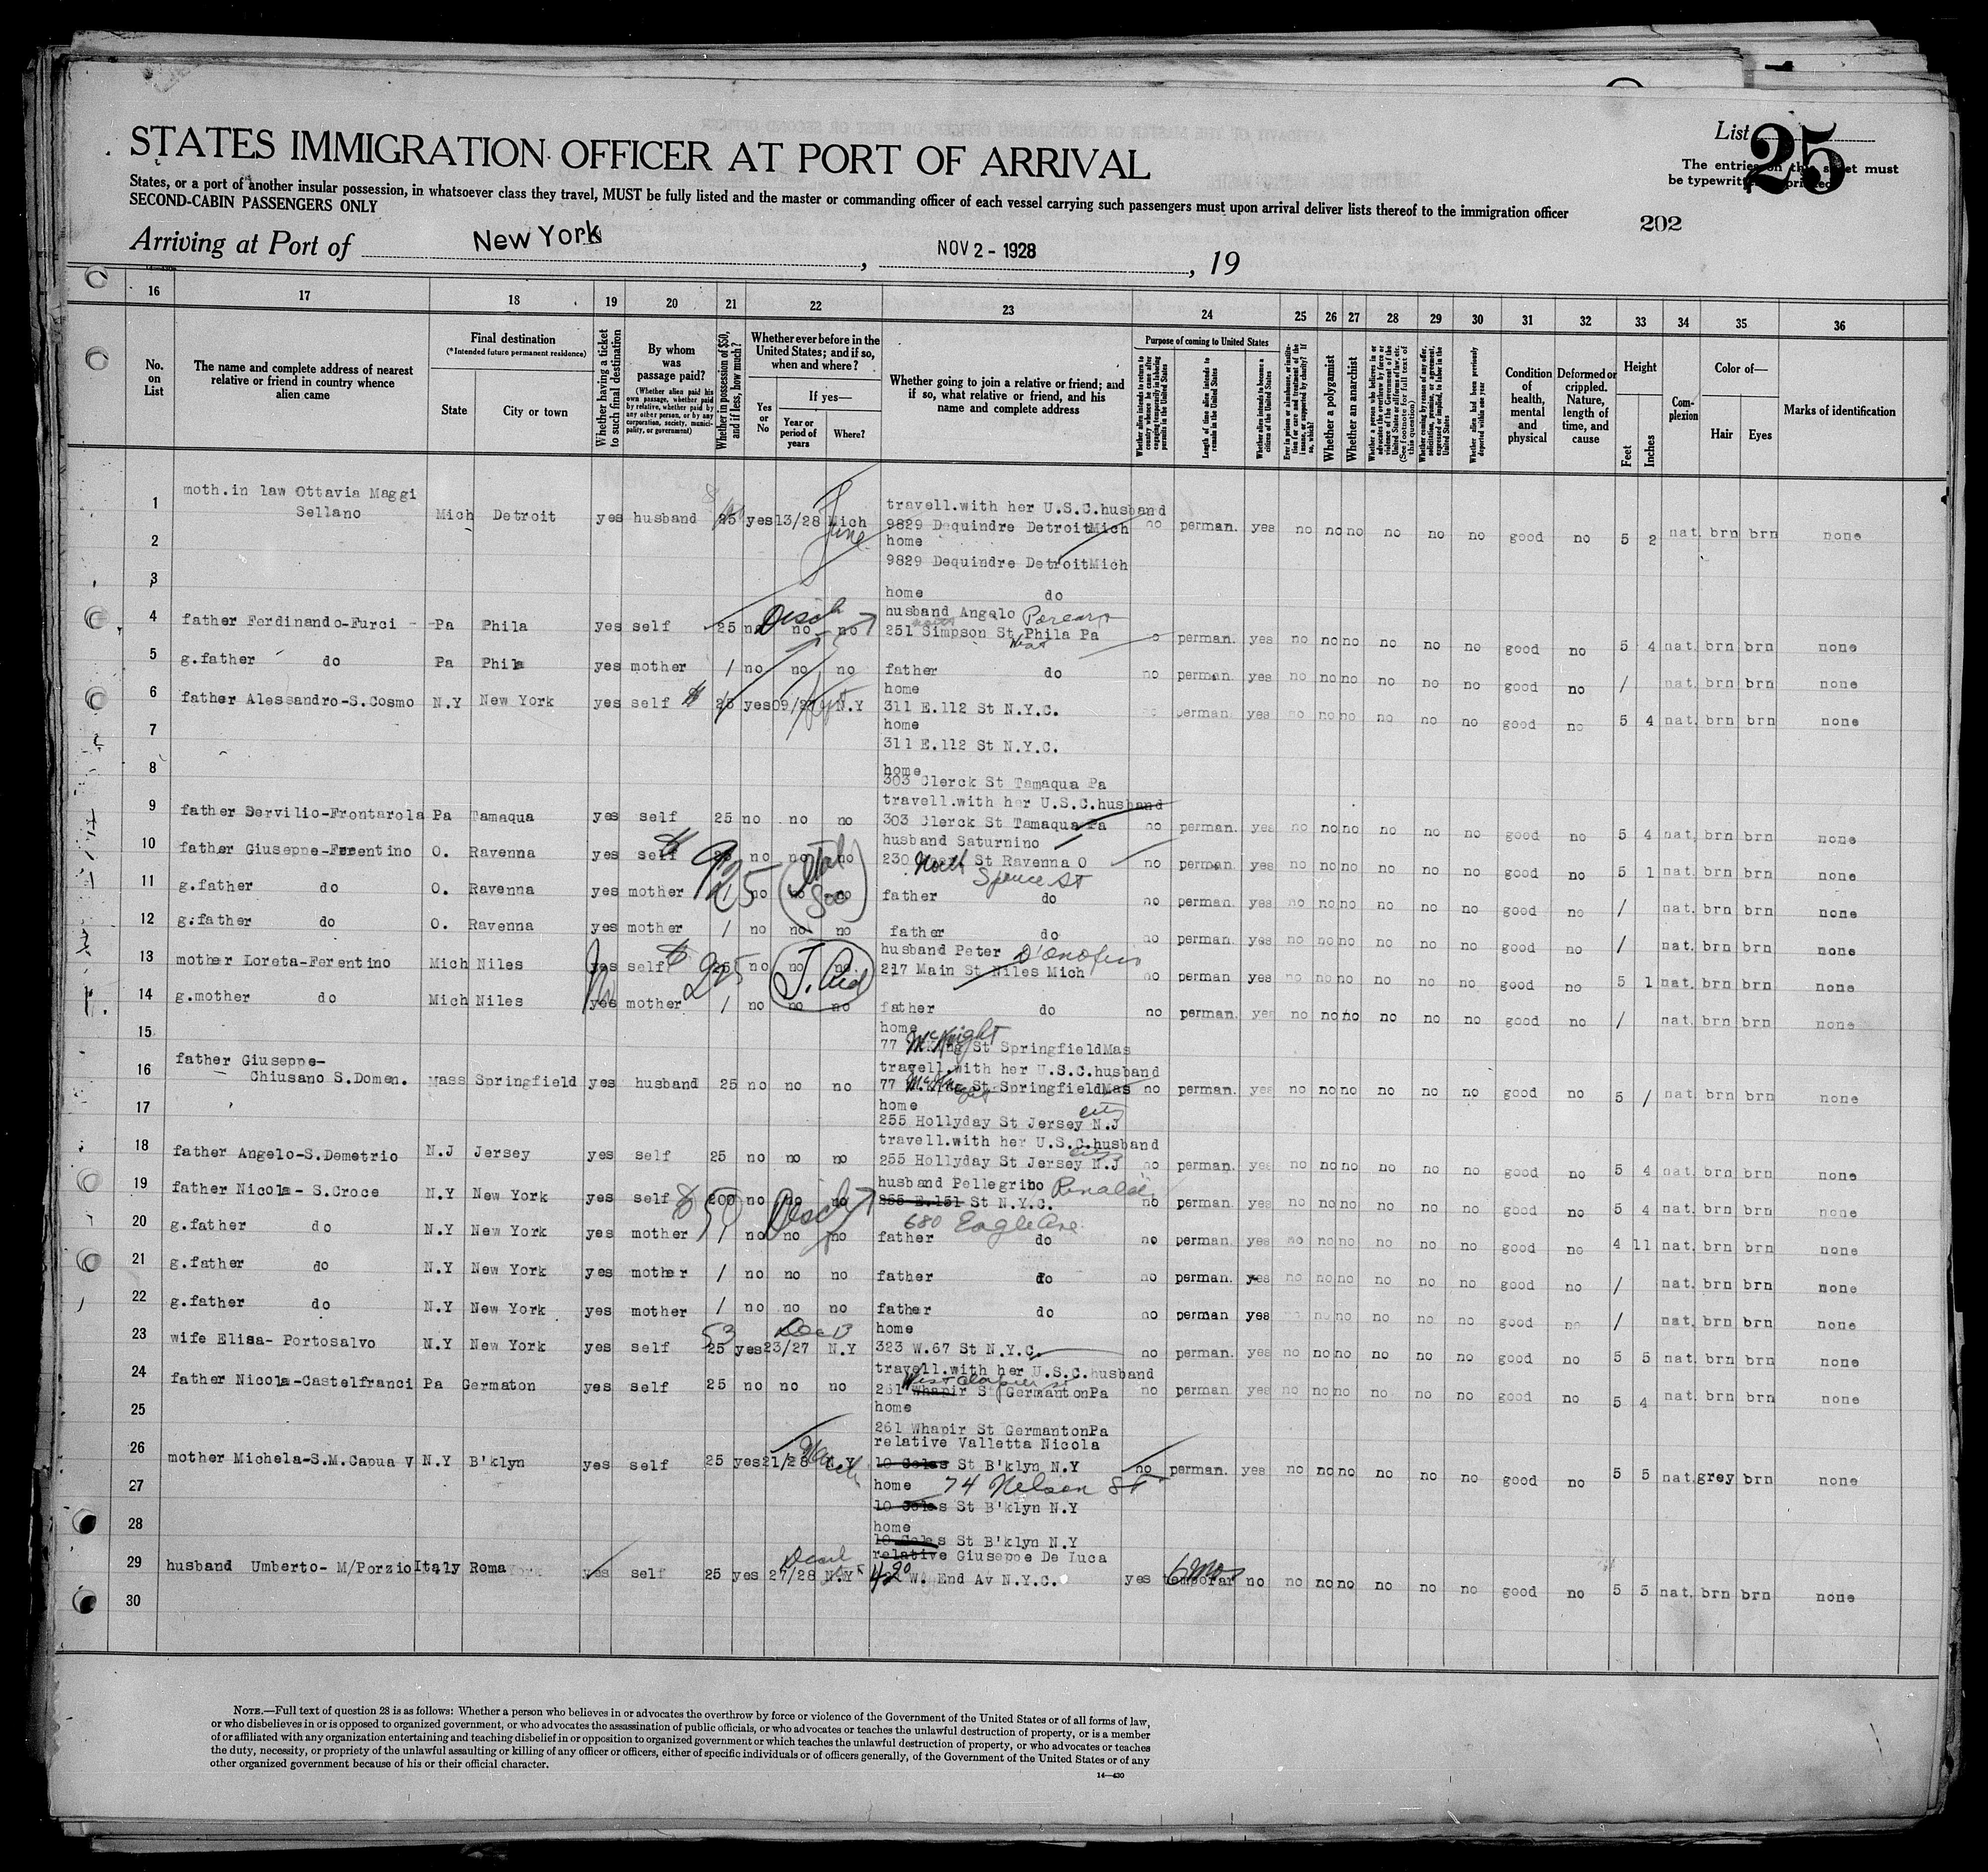 STATES IMMIGRATION OFFICER AT PORT OF ARRIVAL
List 25
The entries on this sheet must
be typewritten or printed
States, or a port of another insular possession, in whatsoever class they travel, MUST be fully listed and the master or commanding officer of each vessel carrying such passengers must upon arrival deliver lists thereof to the immigration officer
SECOND-CABIN PASSENGERS ONLY
202
Arriving at Port of New York, NOV 2 - 1928, 19
16 17 18 19 20 21 22 23 24 25 26 27 28 29 30 31 32 33 34 35 36
No. on List
The name and complete address of nearest relative or friend in country whence alien came
Final destination
(*Intended future permanent residence)
State
City or town
Whether having a ticket to such final destination
By whom was passage paid?
(Whether alien paid his own passage, whether paid by relative, whether paid by any other person, or by any corporation, society, municipality, or government)
Whether in possession of $50, and if less, how much?
Whether ever before in the United States; and if so, when and where?
Yes or No
If yes—
Year or period of years
Where?
Whether going to join a relative or friend; and if so, what relative or friend, and his name and complete address
Purpose of coming to United States
Whether alien intends to return to country whence he came after engaging temporarily in laboring pursuits in the United States
Length of time alien intends to remain in the United States
Whether alien intends to become a citizen of the United States
Whether a polygamist
Whether an anarchist
Whether alien had been previously deported within one year
Condition of health, mental and physical
Deformed or crippled. Nature, length of time, and cause
Height
Feet
Inches
Complexion
Color of—
Hair
Eyes
Marks of identification
1 moth.in law Ottavia Maggi
Sellano Mich Detroit yes husband 25 yes 13/28 Mich June
travell.with her U.S.C.husband
9829 Dequindre Detroit Mich no perman. yes no no no no no no good no 5 2 nat. brn brn none
2 home
9829 Dequindre Detroit Mich
3 home do
4 father Ferdinando-Furci Pa Phila yes self 25 no no no
husband Angelo
251 Simpson St Phila Pa no perman. yes no no no no no no good no 5 4 nat. brn brn none
5 g.father do Pa Phila yes mother / no no no father do no perman. yes no no no no no no good no / nat. brn brn none
6 father Alessandro-S.Cosmo N.Y New York yes self 25 yes 09/27 N.Y
home
311 E.112 St N.Y.C. no perman. yes no no no no no no good no 5 4 nat. brn brn none
7 home
311 E.112 St N.Y.C.
8 home
303 Clerck St Tamaqua Pa
9 father Dervilio-Frontarola Pa Tamaqua yes self 25 no no no
travell.with her U.S.C.husband
303 Clerck St Tamaqua Pa no perman. yes no no no no no no good no 5 4 nat. brn brn none
10 father Giuseppe-Ferentino O. Ravenna yes self 25 no no no
husband Saturnino
230 North St Ravenna O no perman. yes no no no no no no good no 5 1 nat. brn brn none
Spruce St
11 g.father do O. Ravenna yes mother / no no no father do no perman. yes no no no no no no good no / nat. brn brn none
12 g.father do O. Ravenna yes mother / no no no father do no perman. yes no no no no no no good no / nat. brn brn none
13 mother Loreta-Ferentino Mich Niles yes self 25 no no no
husband Peter D'Onofrio
217 Main St Niles Mich no perman yes no no no no no no good no 5 1 nat. brn brn none
T. Aid
14 g.mother do Mich Niles yes mother / no no no father do no perman. yes no no no no no no good no / nat. brn brn none
15 home
77 McKnight St Springfield Mas
16 father Giuseppe-
Chiusano S.Domen. Mass Springfield yes husband 25 no no no
travell.with her U.S.C.husband
77 St Springfield Mas no perman. yes no no no no no no good no 5 / nat brn brn none
17 home
255 Hollyday St Jersey City N.J
18 father Angelo-S.Demetrio N.J Jersey yes self 25 no no no
travell.with her U.S.C.husband
255 Hollyday St Jersey City N.J no perman. yes no no no no no no good no 5 4 nat. brn brn none
19 father Nicola- S.Croce N.Y New York yes self 200 no no no
husband Pellegrino
255 E.151 St N.Y.C. no perman. yes no no no no no no good no 5 4 nat. brn brn none
680 Eagle Ave
20 g.father do N.Y New York yes mother / no no no father do no perman. yes no no no no no no good no 4 11 nat. brn brn none
21 g.father do N.Y New York yes mother / no no no father do no perman. yes no no no no no no good no / nat. brn brn none
22 g.father do N.Y New York yes mother / no no no father do no perman yes no no no no no good no / nat. brn brn none
23 wife Elisa- Portosalvo N.Y New York yes self 53 25 yes 23/27 N.Y
home
323 W.67 St N.Y.C. no perman. yes no no no no no no good no 5 5 nat. brn brn none
24 father Nicola-Castelfranci Pa Germaton yes self 25 no no no
travell.with her U.S.C.husband
261 Whapir St Germanton Pa no perman. yes no no no no no no good no 5 4 nat. brn brn none
25 home
261 Whapir St Germanton Pa
26 mother Michela-S.M.Capua V N.Y B'klyn yes self 25 yes 21/28 N.Y March
relative Valletta Nicola
10 Coles St B'klyn N.Y no perman. yes no no no no no no good no 5 5 nat. grey brn none
27 home 74 Nelson St
10 Coles St B'klyn N.Y
28 home
10 Coles St B'klyn N.Y
29 husband Umberto- M/Porzio Italy Roma yes self 25 yes 27/28 N.Y
relative Giuseppe De Luca
420 W. End Av N.Y.C. yes temporar 6 mos no no no no no no no good no 5 5 nat. brn brn none
30
NOTE.—Full text of question 28 is as follows: Whether a person who believes in or advocates the overthrow by force or violence of the Government of the United States or of all forms of law,
or who disbelieves in or is opposed to organized government, or who advocates the assassination of public officials, or who advocates or teaches the unlawful destruction of property, or is a member
of or affiliated with any organization entertaining and teaching disbelief in or opposition to organized government or which teaches the unlawful destruction of property, or who advocates or teaches
the duty, necessity, or propriety of the unlawful assaulting or killing of any officer or officers, either of specific individuals or of officers generally, of the Government of the United States or of any
other organized government because of his or their official character.
14—430